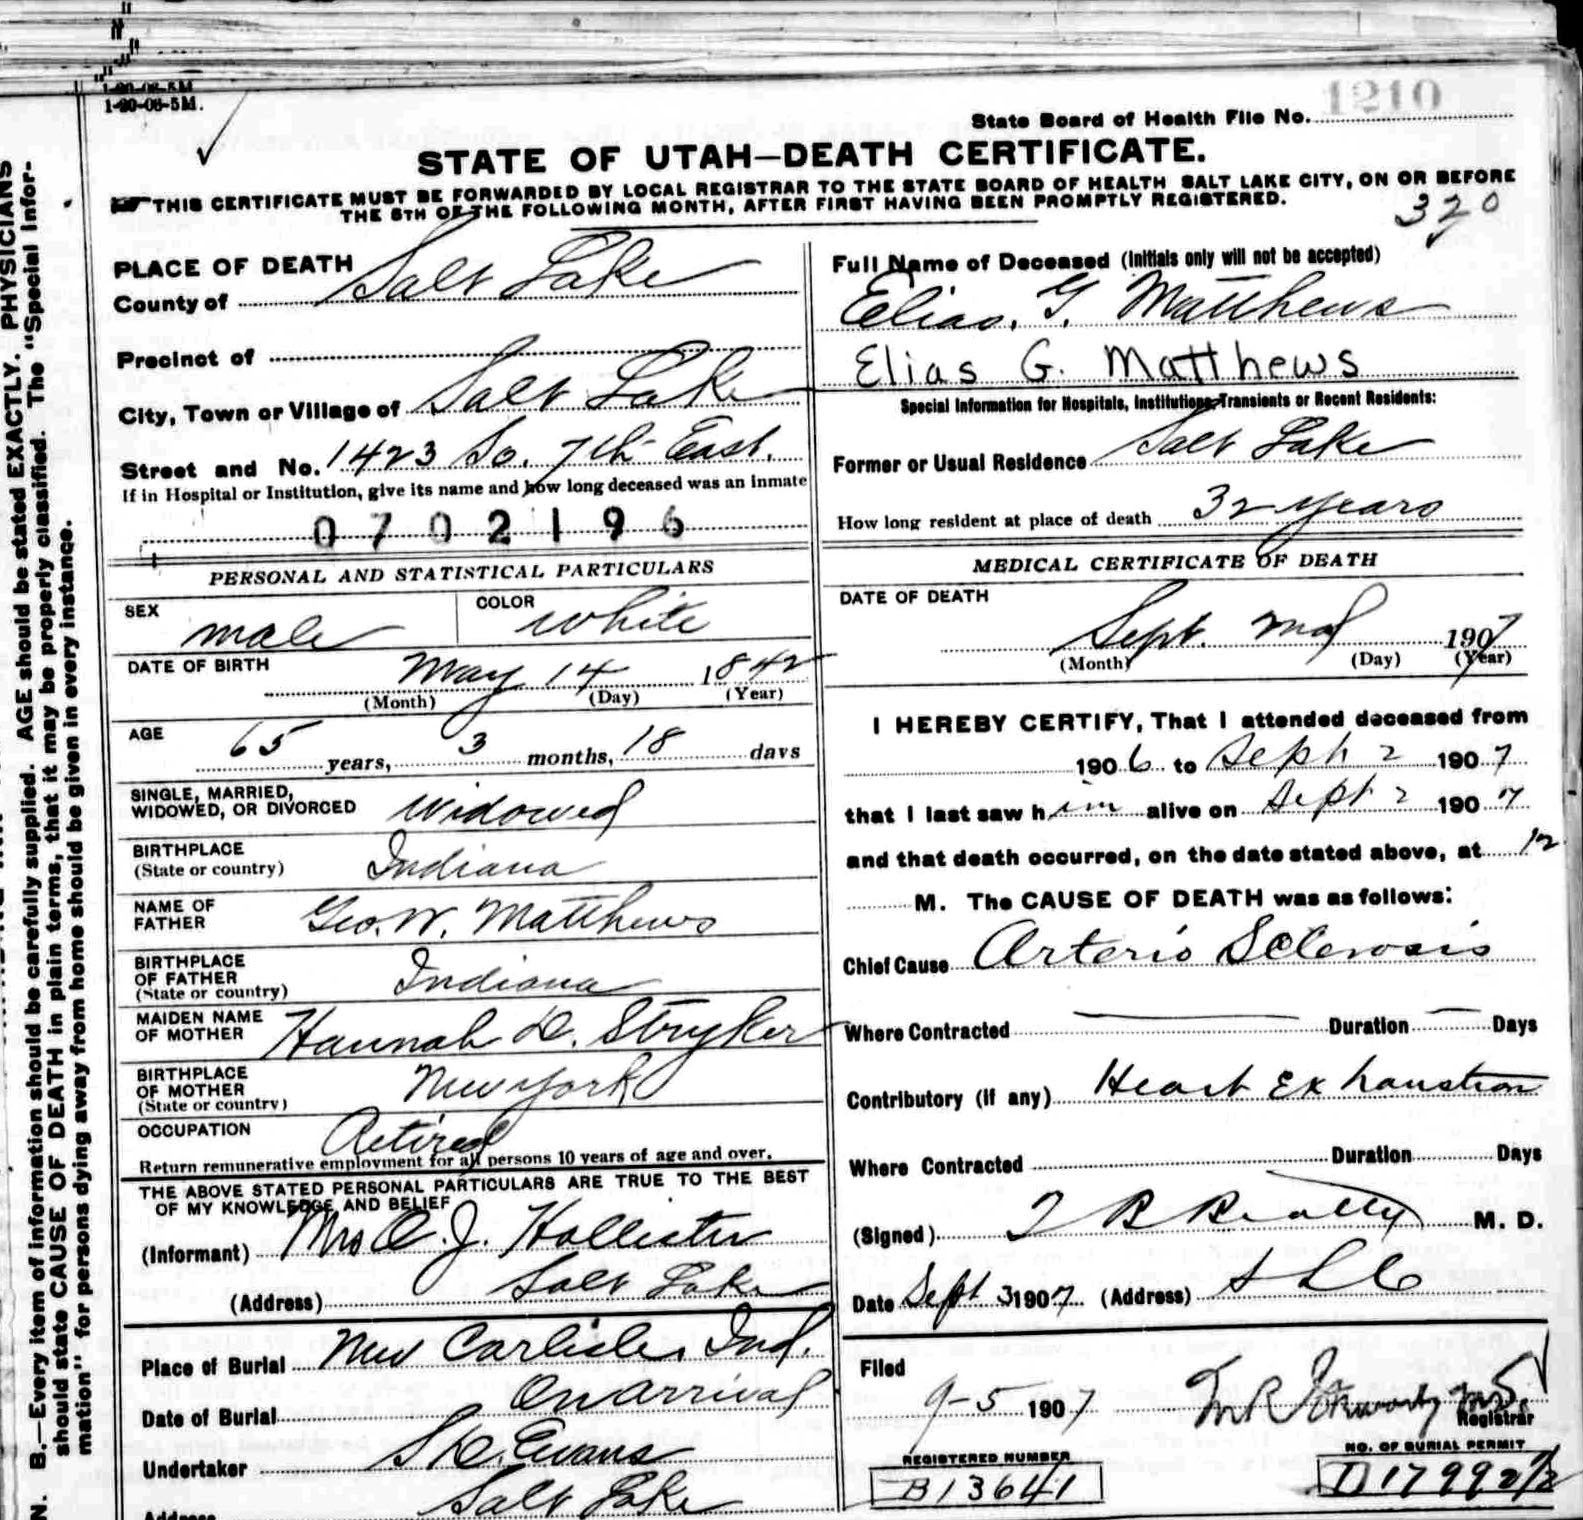 1-20-06-5M.
1-20-06-5M.
State Board of Health File No. 1210
STATE OF UTAH—DEATH CERTIFICATE.
THIS CERTIFICATE MUST BE FORWARDED BY LOCAL REGISTRAR TO THE STATE BOARD OF HEALTH SALT LAKE CITY, ON OR BEFORE
THE 5TH OF THE FOLLOWING MONTH, AFTER FIRST HAVING BEEN PROMPTLY REGISTERED.
320
PLACE OF DEATH
County of Salt Lake
Precinct of
City, Town or Village of Salt Lake
Street and No. 1423 So. 7th East.
If in Hospital or Institution, give its name and how long deceased was an inmate
0702196
PERSONAL AND STATISTICAL PARTICULARS
SEX male COLOR white
DATE OF BIRTH May 14 1842
(Month) (Day) (Year)
AGE 65 years, 3 months, 18 days
SINGLE, MARRIED,
WIDOWED, OR DIVORCED Widowed
BIRTHPLACE
(State or country) Indiana
NAME OF
FATHER Geo. W. Matthews
BIRTHPLACE
OF FATHER
(State or country) Indiana
MAIDEN NAME
OF MOTHER Hannah D. Stryker
BIRTHPLACE
OF MOTHER
(State or country) New York
OCCUPATION Retired
Return remunerative employment for all persons 10 years of age and over.
THE ABOVE STATED PERSONAL PARTICULARS ARE TRUE TO THE BEST
OF MY KNOWLEDGE AND BELIEF
(Informant) Mrs O. J. Hollister
(Address) Salt Lake
Place of Burial New Carlisle, Ind.
Date of Burial On arrival
Undertaker S. D. Evans
Address Salt Lake
Full Name of Deceased (Initials only will not be accepted)
Elias. G. Matthews
Elias G. Matthews
Special Information for Hospitals, Institutions, Transients or Recent Residents:
Former or Usual Residence Salt Lake
How long resident at place of death 32 years
MEDICAL CERTIFICATE OF DEATH
DATE OF DEATH
Sept. 2nd 1907
(Month) (Day) (Year)
I HEREBY CERTIFY, That I attended deceased from
1906 to Sept 2 1907
that I last saw him alive on Sept 2 1907
and that death occurred, on the date stated above, at 12
M. The CAUSE OF DEATH was as follows:
Chief Cause Arterio Sclerosis
Where Contracted — Duration — Days
Contributory (if any) Heart Exhaustion
Where Contracted Duration Days
(Signed) T B Beatty M. D.
Date Sept 3 1907 (Address) S L C
Filed
9-5 1907
Registrar
REGISTERED NUMBER
B13641
NO. OF BURIAL PERMIT
D17992 1/2
N. B.—Every item of information should be carefully supplied. AGE should be stated EXACTLY. PHYSICIANS
should state CAUSE OF DEATH in plain terms, that it may be properly classified. The "Special Infor-
mation" for persons dying away from home should be given in every instance.